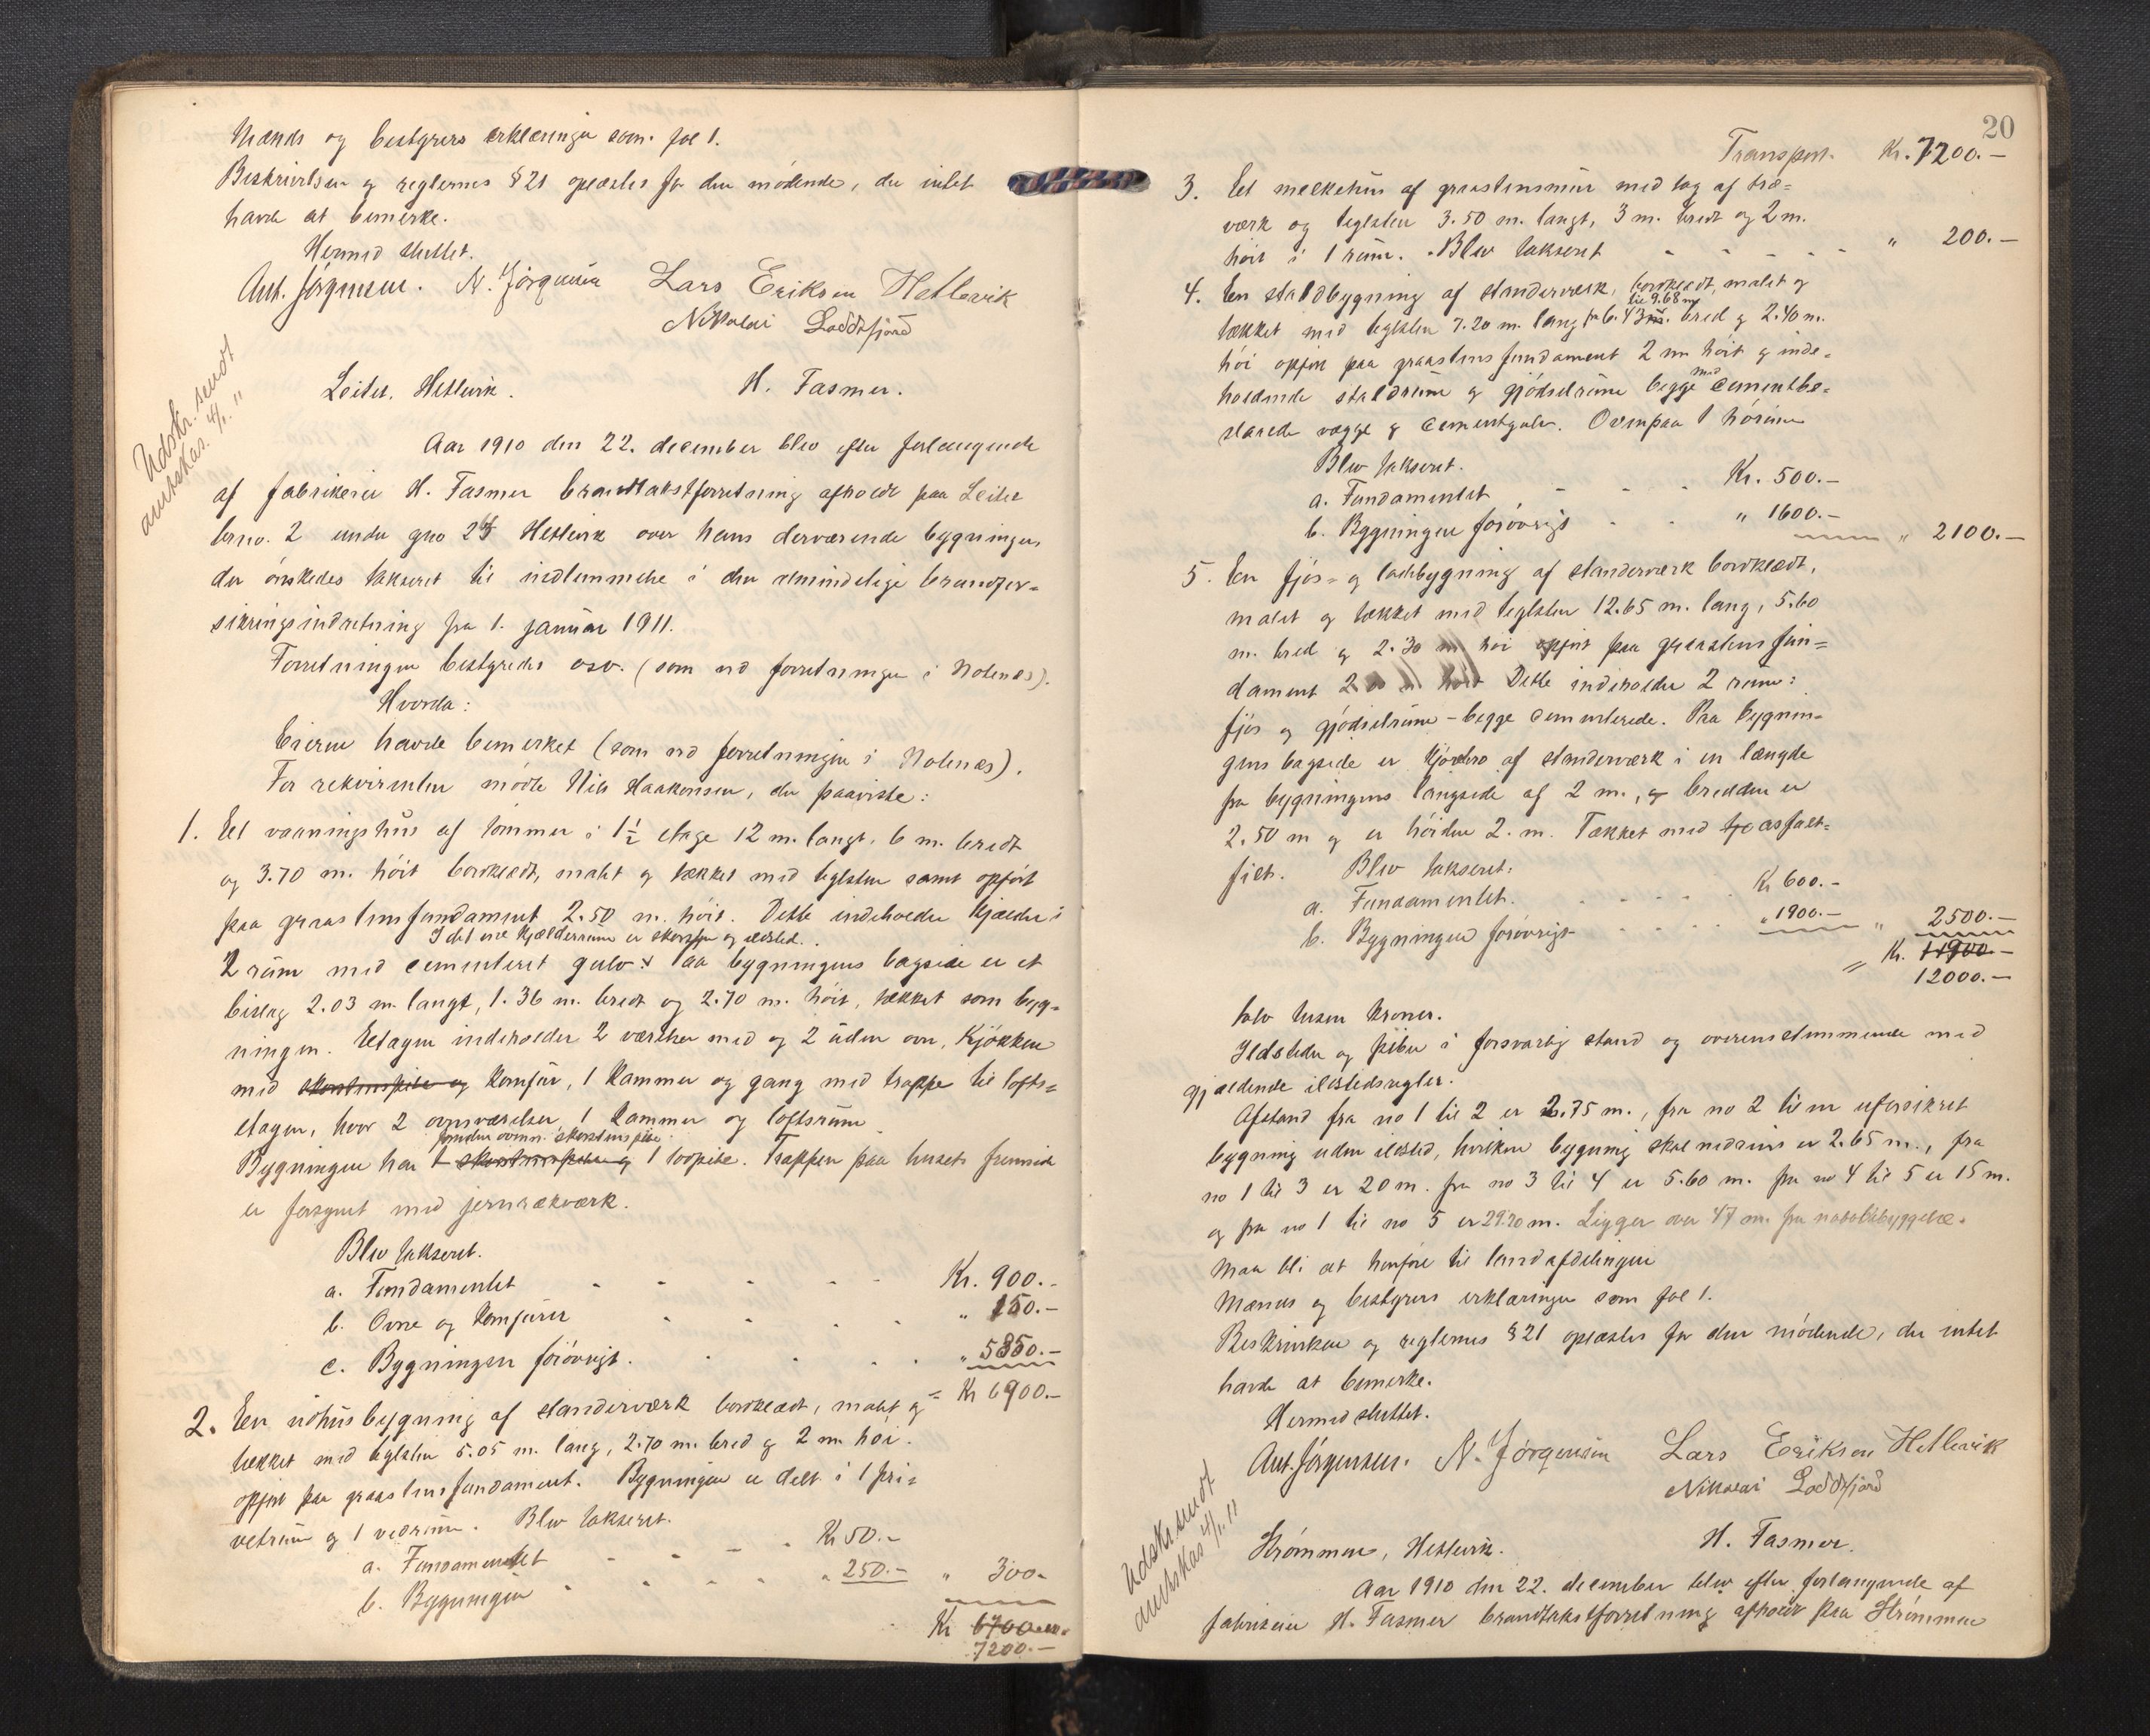 Mænds og bestyrers erklæringer som fol 1.
Beskrivelsen og reglernes § 21 oplæstes for den mödende, der intet
havde at bemerke.
Hermed sluttet.
Ant. Jörgensen. N. Jörgensen Lars Eriksen Hetlevik
Nikolai Loddefjord
Udskr. sendt
amtskas. 4/1. 11
Leitet, Hetlevik. H. Fasmer.
Aar 1910 den 22. december blev efter forlangende
af fabrikeier H. Fasmer brandtakstforretning afholdt paa Leitet
brno. 2 under gno 25 Hetlevik over hans derværende bygninger,
der önskedes takseret til indlemmelse i den almindelige brandfor-
sikringsindretning fra 1. januar 1911.
Forretningen bestyredes osv. (som ved forretningen i Holmen).
Hvorda:
Eieren havde bemerket (som ved forretningen i Holmen).
For rekvirenten mödte Nils Haakonsen, der paaviste:
1. Et vaaningshus af tömmer i 1½ etage 12 m. langt, 6 m. bredt
og 3.70 m. höit bordklædt, malet og tækket med teglsten samt opfört
paa graastensfundament 2.50 m. höit. Dette indeholder kjælder i
I det ene kjælderrum er skorsten og ildsted.
2 rum med cementeret gulv. x Paa bygningens bagside er et
bislag 2.03 m. langt, 1.36 m. bredt og 2.70 m. höit, tækket som byg-
ningen. Etagen indeholder 2 værelser med og 2 uden ovn, kjökken
med skorstenspibe og komfur, 1 kammer og gang med trappe til lofts-
etagen, hvor 2 ovnsværelser, 1 kammer og loftsrum.
foruden ovenn. skorstenspibe
Bygningen har 1 skorstenspibe og 1 rörpibe. Trappen paa husets fremside
er forsynet med jernrækværk.
Blev takseret.
a. Fundamentet - - - - - Kr. 900.-
b. Ovne og komfurer - - - - " 150.-
c. Bygningen forövrigt. - - - - " 5850.-
= Kr 6900.-
2. En udhusbygning af standerværk bordklædt, malet og
tækket med teglsten 5.05 m. lang, 2.70 m. bred og 2 m. höi.
opfört paa graastensfundament. Bygningen er delt i 1 pri-
vetrum og 1 vedrum. Blev takseret.
a. Fundamentet - - - - Kr 50.-
b. Bygningen - - - - " 250.- " 300.-
Kr 6700.-
7200.-
20
Transport. Kr. 7200.-
3. Et melkehus af graastensmur med tag af træ-
værk og teglsten 3.50 m. langt, 3 m. bredt og 2 m.
höit i 1 rum. Blev takseret - - - - " 200.-
4. En staldbygning af standerværk, bordklædt, malet og
til 9.68 m
tækket med teglsten 7.20 m. lang fra 6.43 m. bred og 2.40 m.
höi opfört paa graastensfundament 2 m. höit og inde-
med
holdende staldrum og gjödselrum begge cementbe-
slaaede vægge og cementgulv. Ovenpaa 1 hörum
Blev takseret.
a. Fundamentet - - - Kr. 500.-
b. Bygningen forövrigt - - " 1600.- " 2100.-
5. En fjös- og ladebygning af standerværk bordklædt,
malet og tækket med teglsten 12.65 m. lang, 5.60
m. bred og 2.30 m. höi opfört paa graastensfun-
dament 2 m höit Dette indeholder 2 rum:
fjös og gjödselrum - begge cementerede. Paa bygnin-
gens bagside er kjörebro af standerværk i en længde
fra bygningens langside af 2 m., og bredden er
2.50 m og er höiden 2. m. Tækket med tje asfalt-
filt. Blev takseret:
a. Fundamentet. - - - - Kr 600.-
b. Bygningen forövrigt - - - - " 1900.- " 2500.-
= Kr. 11900.-
12000.-
tolv tusen kroner.
Ildsteder og piber i forsvarlig stand og overensstemmende med
gjældende ildstedsregler.
Afstand fra no 1 til 2 er 2.75 m., fra no 2 til en uforsikret
bygning uden ildsted, hvilken bygning skal nedrives er 2.65 m., fra
no 1 til 3 er 20 m. fra no 3 til 4 er 5.60 m. fra no 4 til 5 er 15 m.
og fra no 1 til no 5 er 29.70 m. Ligger over 47 m. fra nabobebyggelse.
Maa bli at henföre til landafdelingen
Mænds og bestyrers erklæringer som fol 1.
Beskrivelsen og reglernes § 21 oplæstes for den mödende, der intet
havde at bemerke.
Hermed sluttet.
Ant. Jörgensen. N. Jörgensen Lars Eriksen Hetlevik
Nikolai Loddefjord
Udskr. sendt
amtskas 4/1. 11
Strömmen, Hetlevik. H. Fasmer.
Aar 1910 den 22. december blev efter forlangende af
fabrikeier H. Fasmer brandtakstforretning afholdt paa Strömmen